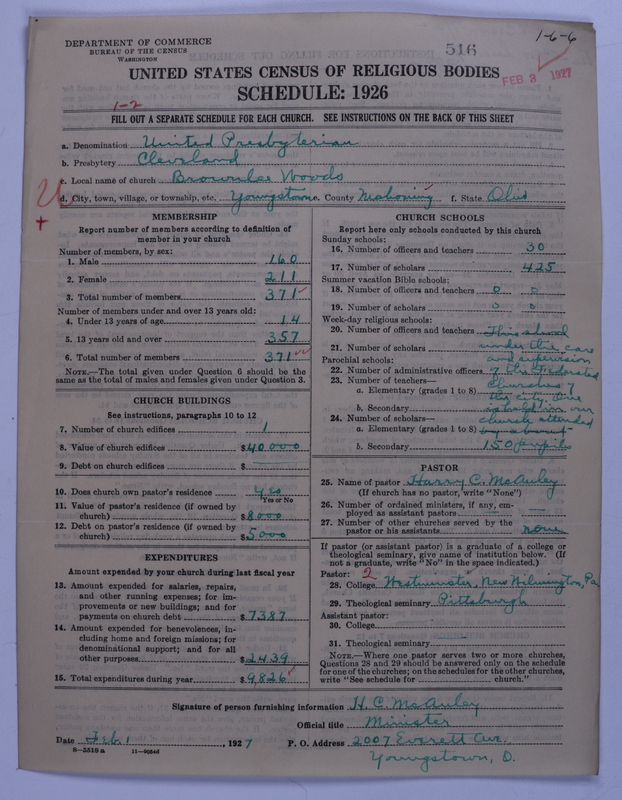 1-6-6
DEPARTMENT OF COMMERCE
BUREAU OF THE CENSUS
WASHINGTON
516
FEB 3 1927
UNITED STATES CENSUS OF RELIGIOUS BODIES
SCHEDULE: 1926
1-2
FILL OUT A SEPARATE SCHEDULE FOR EACH CHURCH. SEE INSTRUCTIONS ON THE BACK OF THIS SHEET
a. Denomination United Presbyterian
b. Presbytery Cleveland
c. Local name of church Brownlee Woods
d. City, town, village, or township, etc. Youngstown e. County Mahoning f. State Ohio
MEMBERSHIP
Report number of members according to definition of member in your church
Number of members, by sex:
1. Male 160
2. Female 211
3. Total number of members 371
Number of members under and over 13 years old:
4. Under 13 years of age 14
5. 13 years old and over 357
6. Total number of members 371
NOTE.—The total given under Question 6 should be the
same as the total of males and females given under Question 3.
CHURCH BUILDINGS
See instructions, paragraphs 10 to 12
7. Number of church edifices 1
8. Value of church edifices $40000
9. Debt on church edifices $
10. Does church own pastor's residence yes
Yes or No
11. Value of pastor's residence (if owned by
church) $8000
12. Debt on pastor's residence (if owned by
church) $5000
EXPENDITURES
Amount expended by your church during last fiscal year
13. Amount expended for salaries, repairs,
and other running expenses; for im-
provements or new buildings; and for
payments on church debt $7387
14. Amount expended for benevolences, in-
cluding home and foreign missions; for
denominational support; and for all
other purposes $2439
15. Total expenditures during year $9,826
CHURCH SCHOOLS
Report here only schools conducted by this church
Sunday schools:
16. Number of officers and teachers 30
17. Number of scholars 425
Summer vacation Bible schools:
18. Number of officers and teachers 0 0
19. Number of scholars 0 0
Week-day religious schools:
20. Number of officers and teachers This school
21. Number of scholars under the care
Parochial schools: and supervision
22. Number of administrative officers of the Federated
23. Number of teachers— Churches of
a. Elementary (grades 1 to 8) the city. One
b. Secondary is held in our
24. Number of scholars— church attended
a. Elementary (grades 1 to 8) by about
b. Secondary 150 pupils
PASTOR
25. Name of pastor Harry C. McAuley
(If church has no pastor, write "None")
26. Number of ordained ministers, if any, em-
ployed as assistant pastors —
27. Number of other churches served by the
pastor or his assistants none
If pastor (or assistant pastor) is a graduate of a college or
theological seminary, give name of institution below. (If
not a graduate, write "No" in the space indicated.)
Pastor: 2
28. College Westminster, New Wilmington, Pa
29. Theological seminary Pittsburgh
Assistant pastor:
30. College
31. Theological seminary
NOTE.—Where one pastor serves two or more churches,
Questions 28 and 29 should be answered only on the schedule
for one of the churches; on the schedules for the other churches,
write "See schedule for church."
Signature of person furnishing information H. C. McAuley
Official title Minister
Date Feb. 1, 1927 P. O. Address 2007 Everett Ave,
8-5518a 11-90646 Youngstown, O.